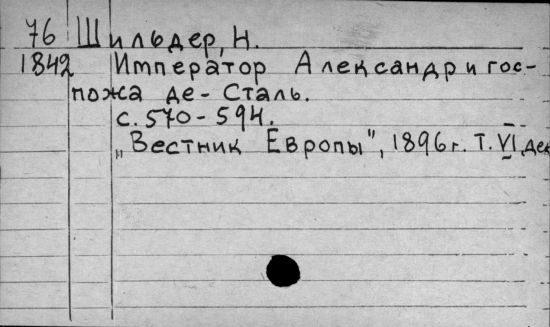 76 Шильдер, Н.
1842 Император Александр и гос-
пожа де-Сталь.
с. 570-594.
„Вестник Европы", 1896 г. Т. VI, дек